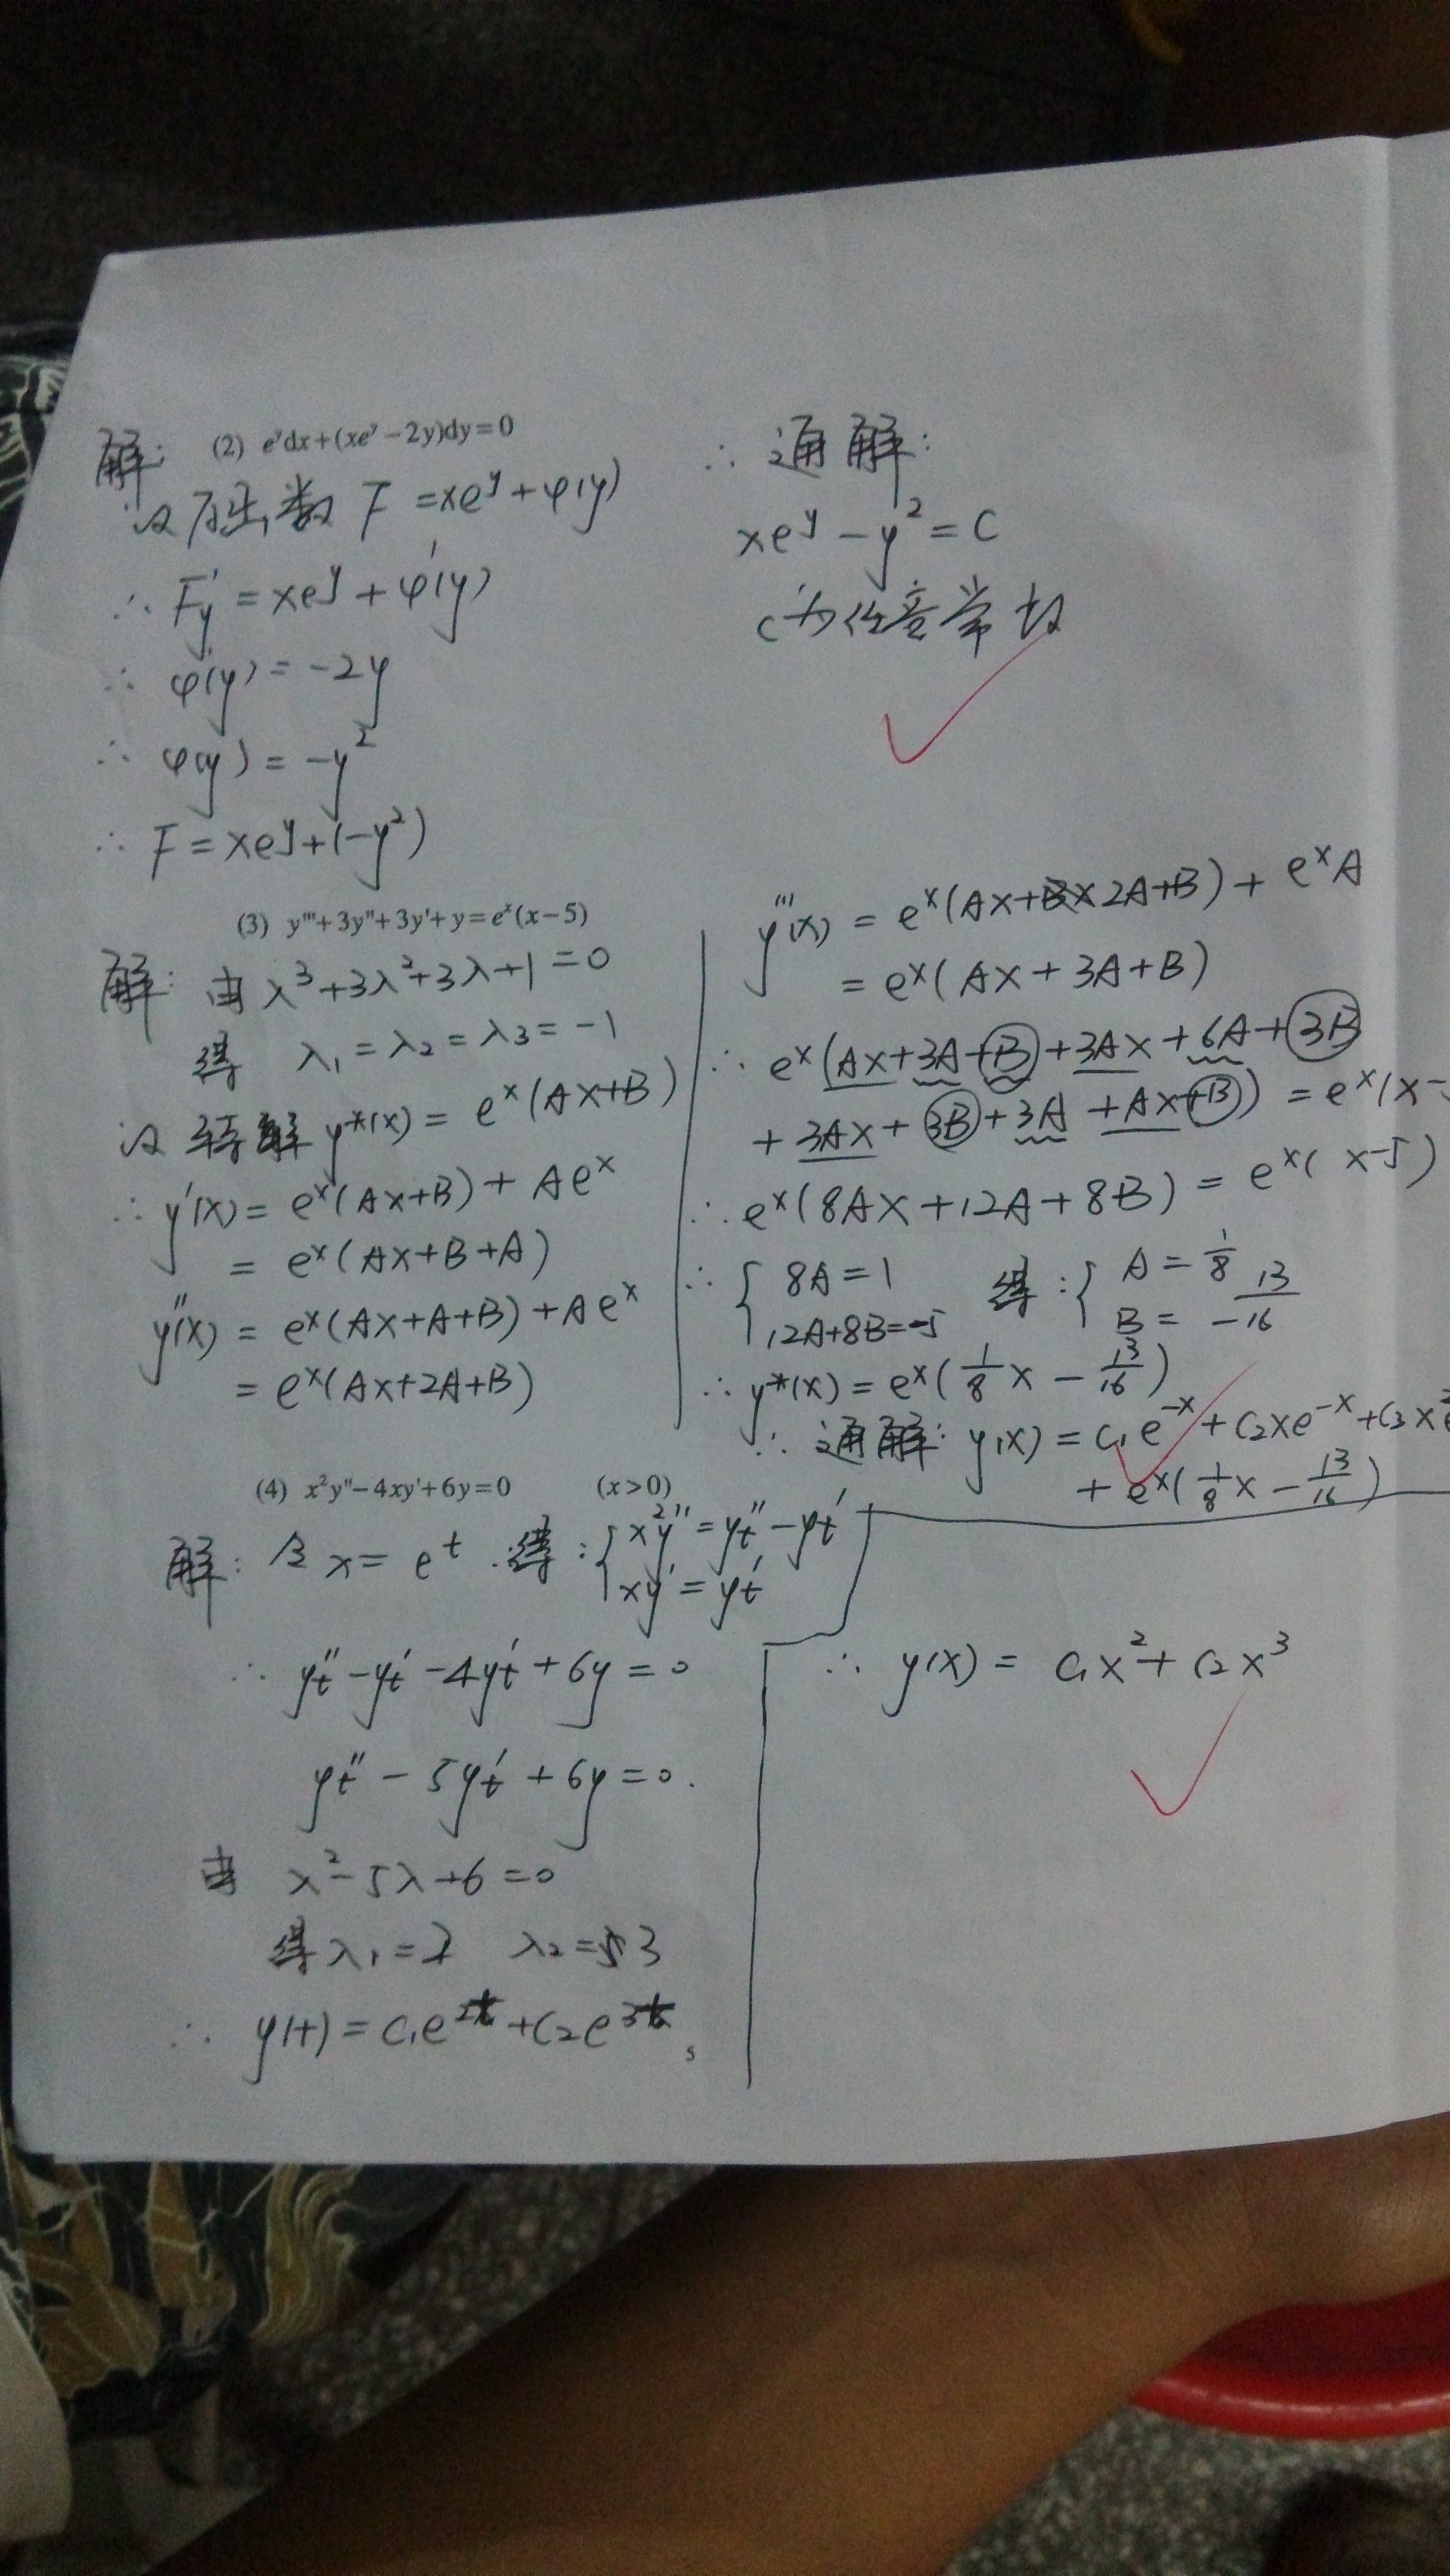 (2) eʸdx+(xeʸ−2y)dy=0
解:
设原函数 F =xeʸ+φ(y)
∴ F'y = xeʸ + φ'(y)
∴ φ'(y) = −2y
∴ φ(y) = −y²
∴ F = xeʸ+(−y²)
∴ 通解:
xeʸ − y² = C
C为任意常数
(3) y'''+3y''+3y'+y=eˣ(x−5)
解: 由 λ³+3λ²+3λ+1=0
得 λ₁=λ₂=λ₃=−1
设特解 y*(x) = eˣ(Ax+B)
∴ y'(x) = eˣ(Ax+B) + Aeˣ
= eˣ(Ax+B+A)
y''(x) = eˣ(Ax+A+B)+Aeˣ
= eˣ(Ax+2A+B)
y'''(x) = eˣ(Ax+2A+B) + eˣA
= eˣ(Ax+3A+B)
∴ eˣ(Ax+3A+B+3Ax+6A+3B
+3Ax+3B+3A+Ax+B) = eˣ(x−
∴ eˣ(8Ax+12A+8B) = eˣ(x−5)
∴ { 8A=1 得: { A = 1/8
12A+8B=−5 B = −13/16
∴ y*(x) = eˣ(1/8 x − 13/16)
∴ 通解: y(x) = C₁e⁻ˣ+C₂xe⁻ˣ+C₃x²e
+ eˣ(1/8 x − 13/16)
(4) x²y''−4xy'+6y=0 (x>0)
解: 令 x = eᵗ 得: { x²y''=yt''−yt'
xy' = yt'
∴ yt''−yt'−4yt'+6y=0
yt''−5yt'+6y=0.
由 λ²−5λ+6=0
得 λ₁=2 λ₂=3
∴ y(t) = C₁e²ᵗ+C₂e³ᵗ
∴ y(x) = C₁x²+C₂x³